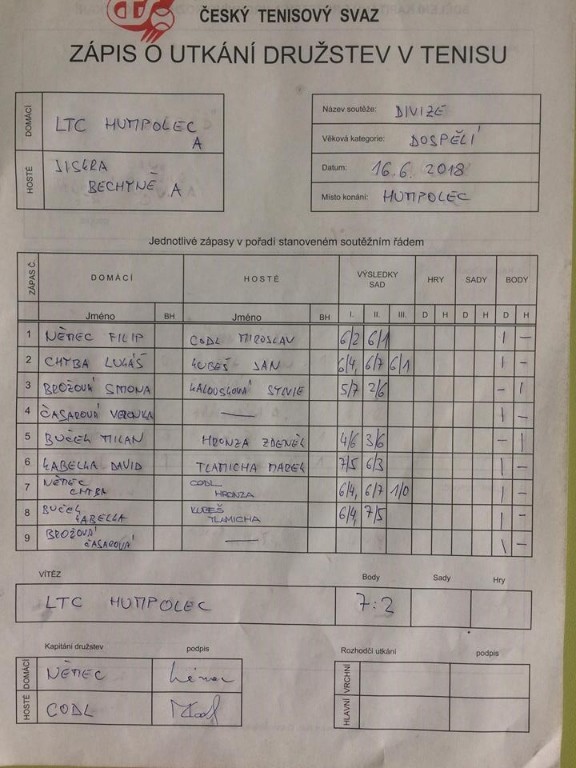 ČESKÝ TENISOVÝ SVAZ
ZÁPIS O UTKÁNÍ DRUŽSTEV V TENISU
DOMÁCÍ LTC HUMPOLEC A
HOSTÉ JISKRA BECHYNĚ A
Název soutěže: DIVIZE
Věková kategorie: DOSPĚLÍ
Datum: 16.6.2018
Místo konání: HUMPOLEC
Jednotlivé zápasy v pořadí stanoveném soutěžním řádem
ZÁPAS Č. DOMÁCÍ HOSTÉ VÝSLEDKY SAD HRY SADY BODY
Jméno BH Jméno BH I. II. III. D H D H D H
1 NĚMEC FILIP CODL MIROSLAV 6/2 6/1 1 –
2 CHYBA LUKÁŠ KUBEŠ JAN 6/4, 6/7 6/1 1 –
3 BROŽOVÁ SIMONA KALOUSKOVÁ SYLVIE 5/7 2/6 – 1
4 ČASAROVÁ VERONIKA — 1 –
5 BUČEK MILAN HRONZA ZDENĚK 4/6 3/6 – 1
6 KABELKA DAVID TLAMICHA MAREK 7/5 6/3 1 –
7 NĚMEC CHYBA CODL HRONZA 6/4, 6/7 1/0 1 –
8 BUČEK KABELKA KUBEŠ TLAMICHA 6/4, 7/5 1 –
9 BROŽOVÁ ČASAROVÁ — 1 –
VÍTĚZ Body Sady Hry
LTC HUMPOLEC 7:2
Kapitáni družstev podpis Rozhodčí utkání podpis
DOMÁCÍ NĚMEC
HOSTÉ CODL
VRCHNÍ
HLAVNÍ